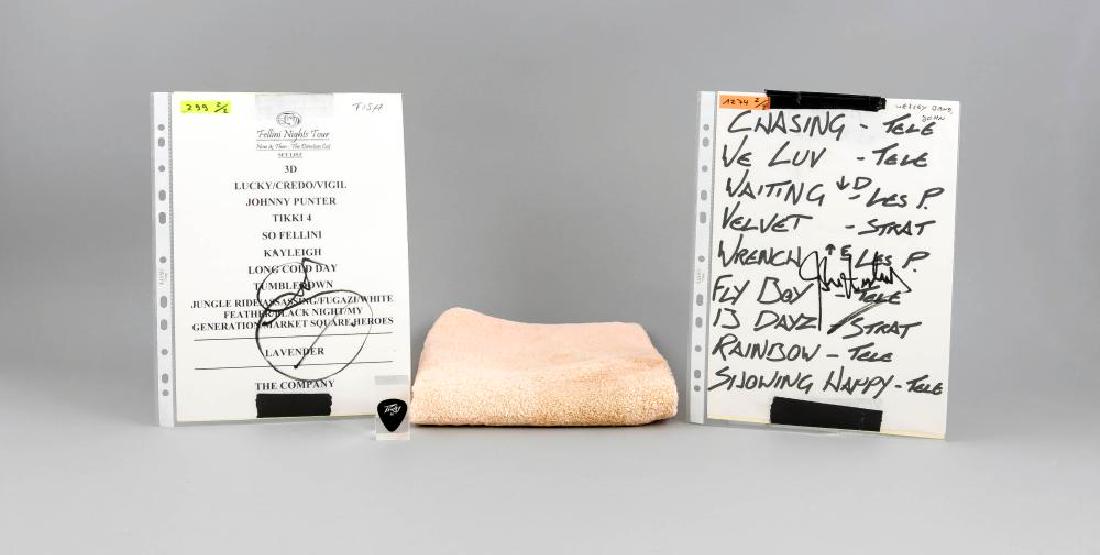 299 2/2
FISH
Fellini Nights Tour
SETLIST
3D
LUCKY/CREDO/VIGIL
JOHNNY PUNTER
TIKKI 4
SO FELLINI
KAYLEIGH
LONG COLD DAY
TUMBLEDOWN
JUNGLE RIDE/ASSASSING/FUGAZI/WHITE
FEATHER/BLACK NIGHT/MY
GENERATION/MARKET SQUARE HEROES
LAVENDER
THE COMPANY
PEAVEY
1274 2/2
JOHN
CHASING - TELE
WE LUV - TELE
WAITING ↓D - LES P.
VELVET - STRAT
WRENCH ↑E LES P.
FLY BOY - TELE
13 DAYZ STRAT
RAINBOW - TELE
SHOWING HAPPY - TELE